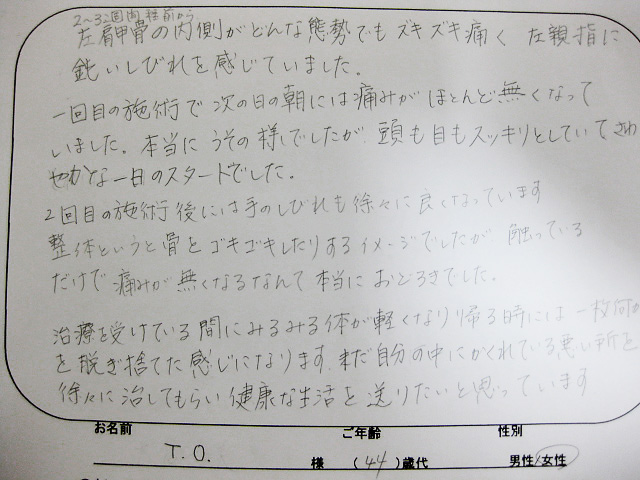 2〜3週間程前から
左肩甲骨の内側がどんな態勢でもズキズキ痛く 左親指に
鈍いしびれを感じていました。
一回目の施術で次の日の朝には痛みがほとんど無くなって
いました。本当にうその様でしたが、頭も目もスッキリとしていてさわ
やかな一日のスタートでした。
2回目の施術後には手のしびれも徐々に良くなっています
整体というと骨とゴキゴキしたりするイメージでしたが、触っている
だけで痛みが無くなるなんて本当におどろきでした。
治療を受けている間にみるみる体が軽くなり帰る時には一枚何か
を脱ぎ捨てた感じになります。まだ自分の中にかくれている悪い所を
徐々に治してもらい健康な生活を送りたいと思っています
お名前 ご年齢 性別
T.O. 様 (44)歳代 男性/女性